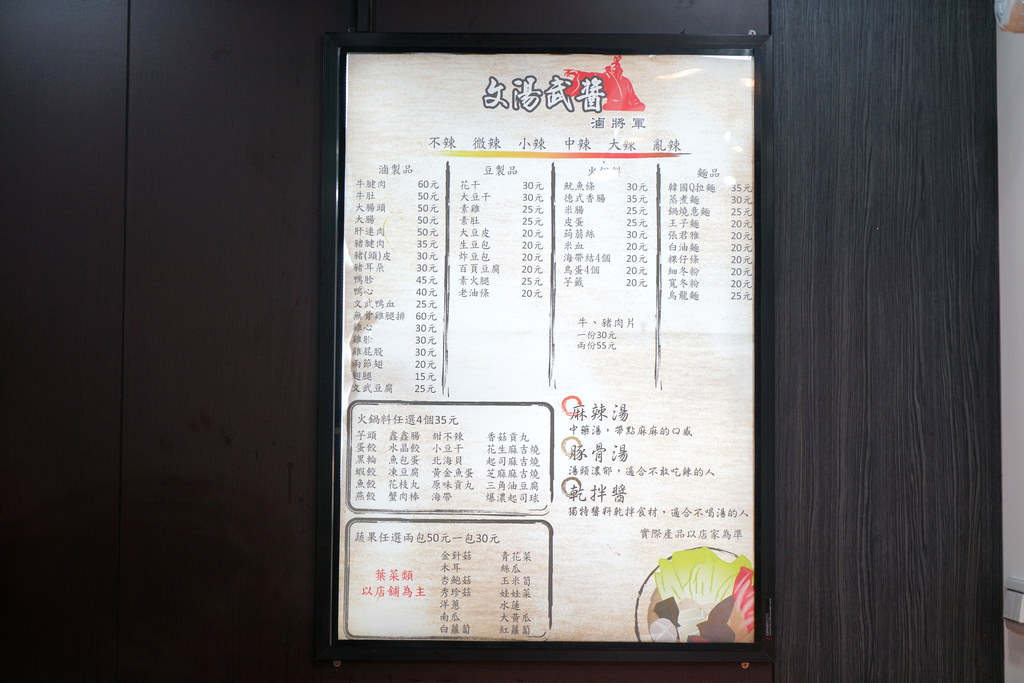 文湯武醬
滷將軍
不辣 微辣 小辣 中辣 大辣 亂辣
滷製品
牛腱肉 60元
牛肚 50元
大腸頭 50元
大腸 50元
肝連肉 50元
豬腱肉 35元
豬(頭)皮 30元
豬耳朵 30元
鴨胗 45元
鴨心 40元
文武鴨血 25元
無骨雞腿排 60元
雞心 30元
雞胗 30元
雞屁股 30元
兩節翅 20元
翅腿 15元
文武豆腐 25元
豆製品
花干 30元
大豆干 30元
素雞 25元
素肚 25元
大豆皮 20元
生豆包 20元
炸豆包 20元
百頁豆腐 20元
素火腿 25元
老油條 20元
火
魷魚條 30元
德式香腸 35元
米腸 25元
皮蛋 25元
蒟蒻絲 30元
米血 20元
海帶結4個 20元
鳥蛋4個 20元
芋籤 20元
牛、豬肉片
一份30元
兩份55元
麵品
韓國Q拉麵 35元
蒸煮麵 30元
鍋燒意麵 25元
王子麵 20元
張君雅 20元
白油麵 20元
粿仔條 20元
細冬粉 20元
寬冬粉 20元
烏龍麵 25元
火鍋料任選4個35元
芋頭 鑫鑫腸 甜不辣 香菇貢丸
蛋餃 水晶餃 小豆干 花生麻吉燒
黑輪 魚包蛋 北海貝 起司麻吉燒
蝦餃 凍豆腐 黃金魚蛋 芝麻麻吉燒
魚餃 花枝丸 原味貢丸 三角油豆腐
燕餃 蟹肉棒 海帶 爆濃起司球
麻辣湯
中藥湯，帶點麻麻的口感
豚骨湯
湯頭濃郁，適合不敢吃辣的人
乾拌醬
獨特醬料乾拌食材，適合不喝湯的人
實際產品以店家為準
蔬果任選兩包50元一包30元
葉菜類
以店舖為主
金針菇 青花菜
木耳 絲瓜
杏鮑菇 玉米筍
秀珍菇 娃娃菜
洋蔥 水蓮
南瓜 大黃瓜
白蘿蔔 紅蘿蔔